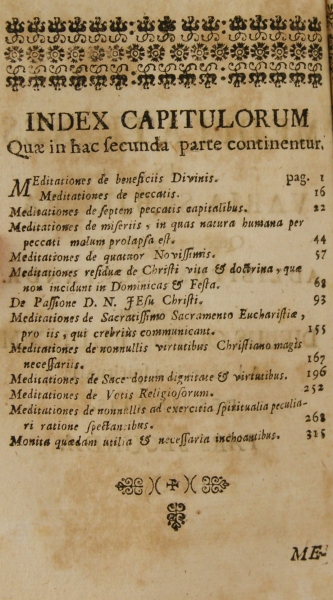 INDEX CAPITULORUM
Quæ in hac secunda parte continentur.
MEditationes de beneficiis Divinis. pag. 1
Meditationes de peccatis. 16
Meditationes de septem peccatis capitalibus. 22
Meditationes de miseriis, in quas natura humana per
peccati malum prolapsa est. 44
Meditationes de quatuor Novissimis. 57
Meditationes residuæ de Christi vita & doctrina, quæ
non incidunt in Dominicas & Festa. 68
De Passione D. N. JEsu Christi. 93
Meditationes de Sacratissimo Sacramento Eucharistiæ,
pro iis, qui crebrius communicant. 155
Meditationes de nonnullis virtutibus Christiano magis
necessariis. 167
Meditationes de Sacerdotum dignitate & virtutibus. 196
Meditationes de Votis Religiosorum. 252
Meditationes de nonnullis ad exercitia spiritualia peculia-
ri ratione spectantibus. 268
Monita quædam utilia & necessaria inchoantibus. 315
ME-